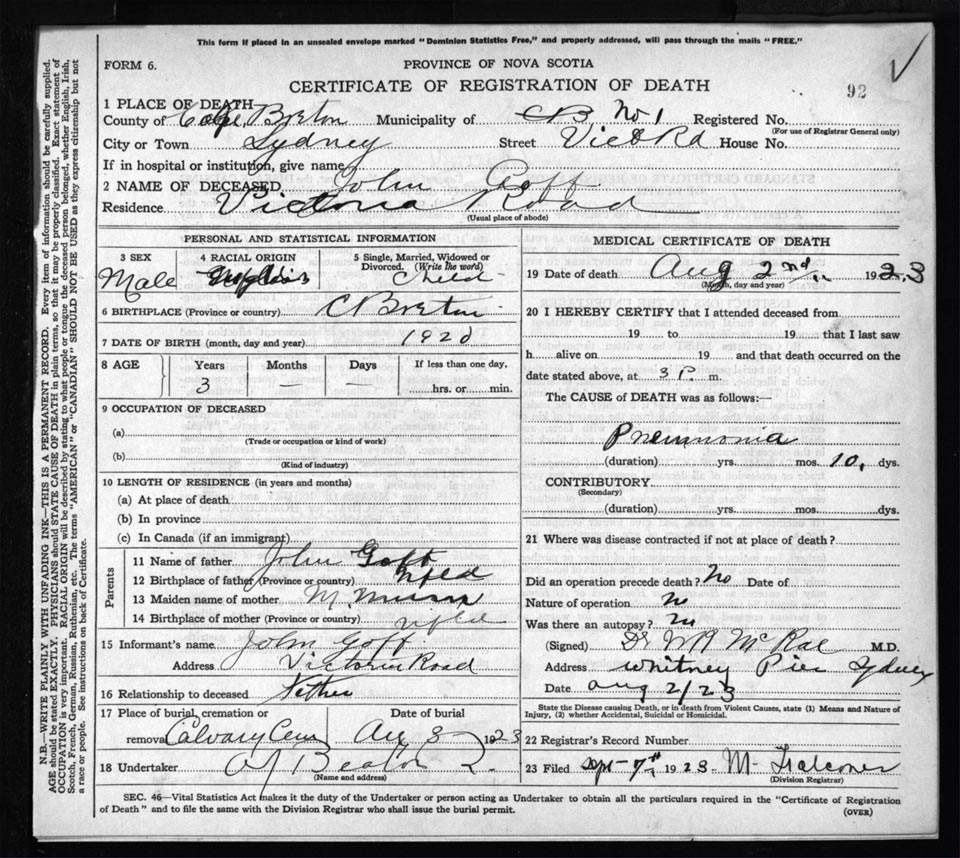 This form if placed in an unsealed envelope marked "Dominion Statistics Free," and properly addressed, will pass through the mails "FREE."
FORM 6.
PROVINCE OF NOVA SCOTIA
CERTIFICATE OF REGISTRATION OF DEATH
92
1 PLACE OF DEATH
County of Cape Breton Municipality of CB No. 1 Registered No.
(For use of Registrar General only)
City or Town Sydney Street Vict Rd House No.
If in hospital or institution, give name
2 NAME OF DECEASED John Goff
Residence Victoria Road
(Usual place of abode)
PERSONAL AND STATISTICAL INFORMATION
3 SEX Male
4 RACIAL ORIGIN English
5 Single, Married, Widowed or Divorced. (Write the word) Child
6 BIRTHPLACE (Province or country) C Breton
7 DATE OF BIRTH (month, day and year) 1920
8 AGE Years Months Days If less than one day,
3 — — hrs. or min.
9 OCCUPATION OF DECEASED
(a)
(Trade or occupation or kind of work)
(b)
(Kind of industry)
10 LENGTH OF RESIDENCE (in years and months)
(a) At place of death
(b) In province
(c) In Canada (if an immigrant)
Parents
11 Name of father John Goff
12 Birthplace of father (Province or country) Nfld
13 Maiden name of mother M.
14 Birthplace of mother (Province or country) Nfld
15 Informant's name John Goff
Address Victoria Road
16 Relationship to deceased Father
17 Place of burial, cremation or removal Calvary Cem
Date of burial Aug 3 1923
18 Undertaker A J Beaton
(Name and address)
MEDICAL CERTIFICATE OF DEATH
19 Date of death Aug 2nd. 1923
(Month, day and year)
20 I HEREBY CERTIFY that I attended deceased from
19 to 19 that I last saw
h alive on 19 and that death occurred on the
date stated above, at 3 P. m.
The CAUSE of DEATH was as follows:—
Pneumonia
(duration) yrs. mos. 10. dys.
CONTRIBUTORY
(Secondary)
(duration) yrs. mos. dys.
21 Where was disease contracted if not at place of death?
Did an operation precede death? No Date of
Nature of operation no
Was there an autopsy? no
(Signed) Dr W R McRae M.D.
Address Whitney Pier Sydney
Date Aug 2/23
State the Disease causing Death, or in death from Violent Causes, state (1) Means and Nature of
Injury, (2) whether Accidental, Suicidal or Homicidal.
22 Registrar's Record Number
23 Filed Sept 7th 1923 M Falconer
(Division Registrar)
SEC. 46—Vital Statistics Act makes it the duty of the Undertaker or person acting as Undertaker to obtain all the particulars required in the "Certificate of Registration
of Death" and to file the same with the Division Registrar who shall issue the burial permit.
(OVER)
N.B.—WRITE PLAINLY WITH UNFADING INK—THIS IS A PERMANENT RECORD. Every item of information should be carefully supplied.
AGE should be stated EXACTLY. PHYSICIANS should STATE CAUSE OF DEATH in plain terms, so that it may be properly classified. Exact statement of
OCCUPATION is very important. RACIAL ORIGIN will be described by stating to what people or tongue the deceased person belonged, whether English, Irish,
Scotch, French, German, Russian, Ruthenian, etc. The terms "AMERICAN" or "CANADIAN" SHOULD NOT BE USED as they express citizenship but not
a race or people. See instructions on back of Certificate.